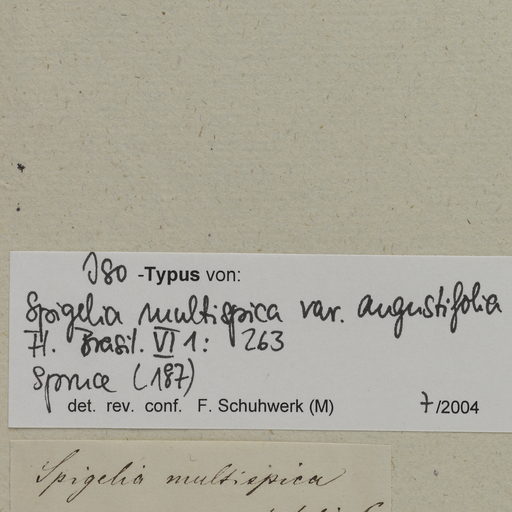 Iso -Typus von:
Spigelia multispica var. angustifolia
Fl. Brasil. VI 1: 263
Spruce (187)
det. rev. conf. F. Schuhwerk (M) 7/2004
Spigelia multispica